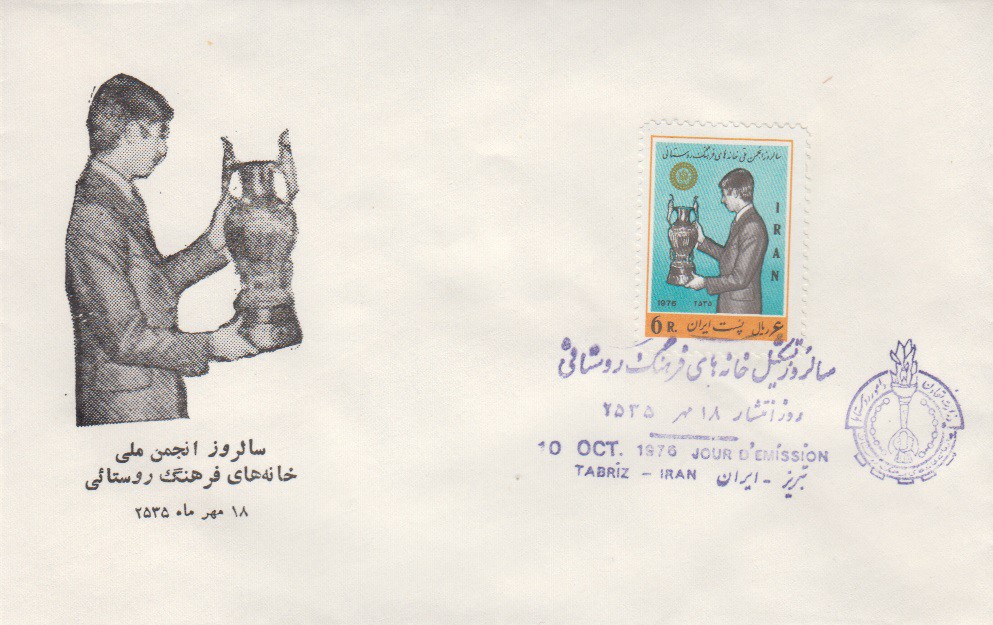 سالروز انجمن ملی
خانه‌های فرهنگ روستائی
۱۸ مهر ماه ۲۵۳۵
سالروز انجمن ملی خانه های فرهنگ روستائی
IRAN
1976 ۲۵۳۵
6 R. پست ایران ۶ ریال
سالروز تشکیل خانه های فرهنگ روستائی
روز انتشار ۱۸ مهر ۲۵۳۵
10 OCT. 1976 JOUR D'EMISSION
TABRIZ - IRAN تبریز - ایران
وزارت تعاون و امور روستاها